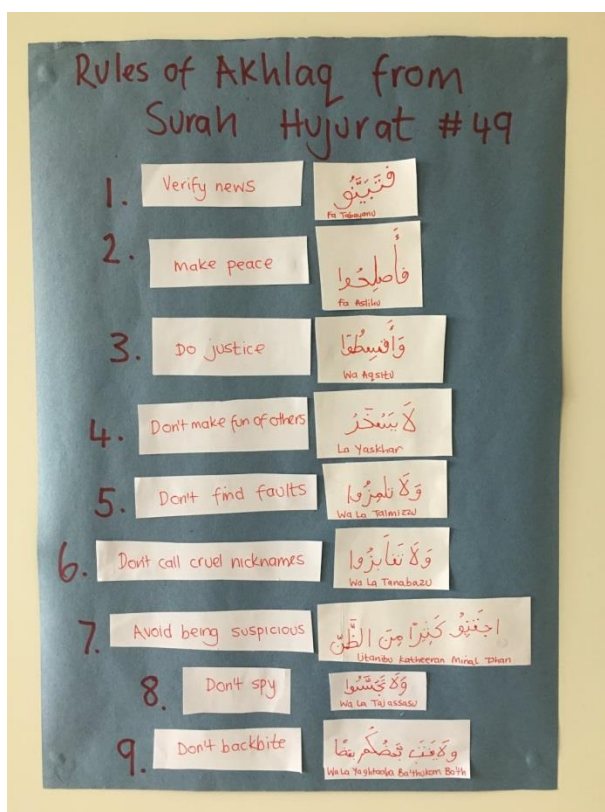 Rules of Akhlaq from
Surah Hujurat #49
1. Verify news
فَتَبَيَّنُو
Fa Tabayanu
2. make peace
فَأَصلِحُوا
Fa Aslihu
3. Do justice
وَأَقسِطُوا
Wa Aqsitu
4. Don't make fun of others
لَا يَسْخَرُ
La Yaskhar
5. Don't find faults
وَلَا تَلمِزُوا
Wa La Talmizzu
6. Don't call cruel nicknames
وَلَا تَنَابَزُوا
Wa La Tanabazu
7. Avoid being suspicious
اجتَنِبُو كَثِيرًا مِنَ الظَّنِّ
Utanibu Katheeran Minal Dhan
8. Don't spy
وَلَا تَجَسَّسُوا
Wa La Tajassasu
9. Don't backbite
وَلَا يَغتَب بَعضُكُم بَعضًا
Wa La Yaghtaba Ba'thukom Ba'th